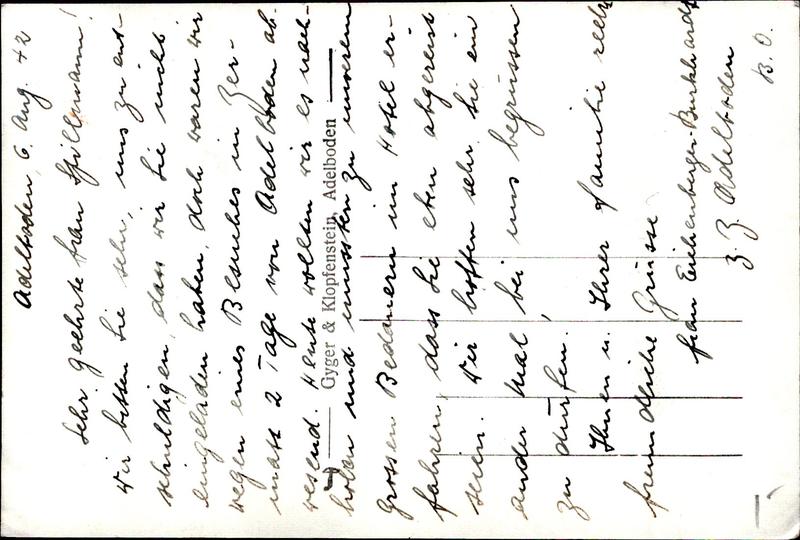 Adelboden, 6. Aug. 42
Sehr geehrte Frau Spillmann!
Wir bitten Sie sehr, uns zu ent-
schuldigen, dass wir Sie nicht
eingeladen haben, doch waren wir
wegen eines Besuches in Zer-
matt 2 Tage von Adelboden ab-
wesend. Heute wollten wir es nach-
Gyger & Klopfenstein, Adelboden
holen und mussten zu unserem
grossen Bedauern im Hotel er-
fahren, dass Sie eben abgereist
seien. Wir hoffen sehr, Sie ein
ander Mal bei uns begrüssen
zu dürfen.
Ihnen u. Ihrer Familie recht
freundliche Grüsse
Frau Eichenberger-Burkhardt
z. Z. Adelboden
B. O.